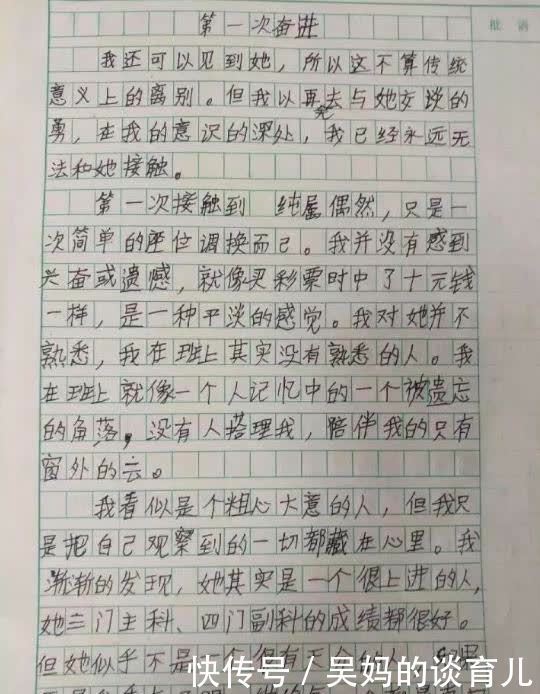 第一次奋进
批语
我还可以见到她，所以这不算传统
意义上的离别。但我以再去与她交谈的
勇，在我的意识的深处，我已经永远无
法和她接触。
第一次接触到 纯属偶然，只是一
次简单的座位调换而已。我并没有感到
兴奋或遗憾，就像买彩票时中了十元钱
一样，是一种平淡的感觉。我对她并不
熟悉，我在班上其实没有熟悉的人。我
在班上就像一个人记忆中的一个被遗忘
的角落，没有人搭理我，陪伴我的只有
窗外的云。
我看似是个粗心大意的人，但我只
是把自己观察到的一切都藏在心里。我
渐渐的发现，她其实是一个很上进的人，
她三门主科、四门副科的成绩都很好。
但她似乎不是一个很有天
快传号/吴妈的谈育儿